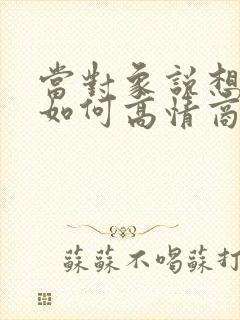 當對象說想
如何高情商
蘇蘇不喝蘇打